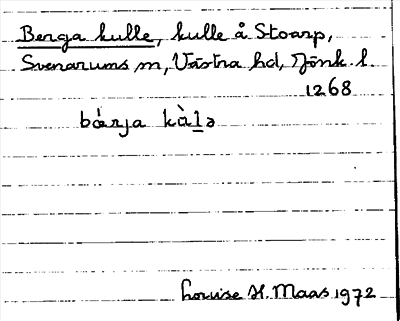 Berga kulle, kulle å Stoarp,
Svenarums sn, Västra hd, Jönk. l.
1268
bǽrja kàl̲ə
Louise H. Maas 1972